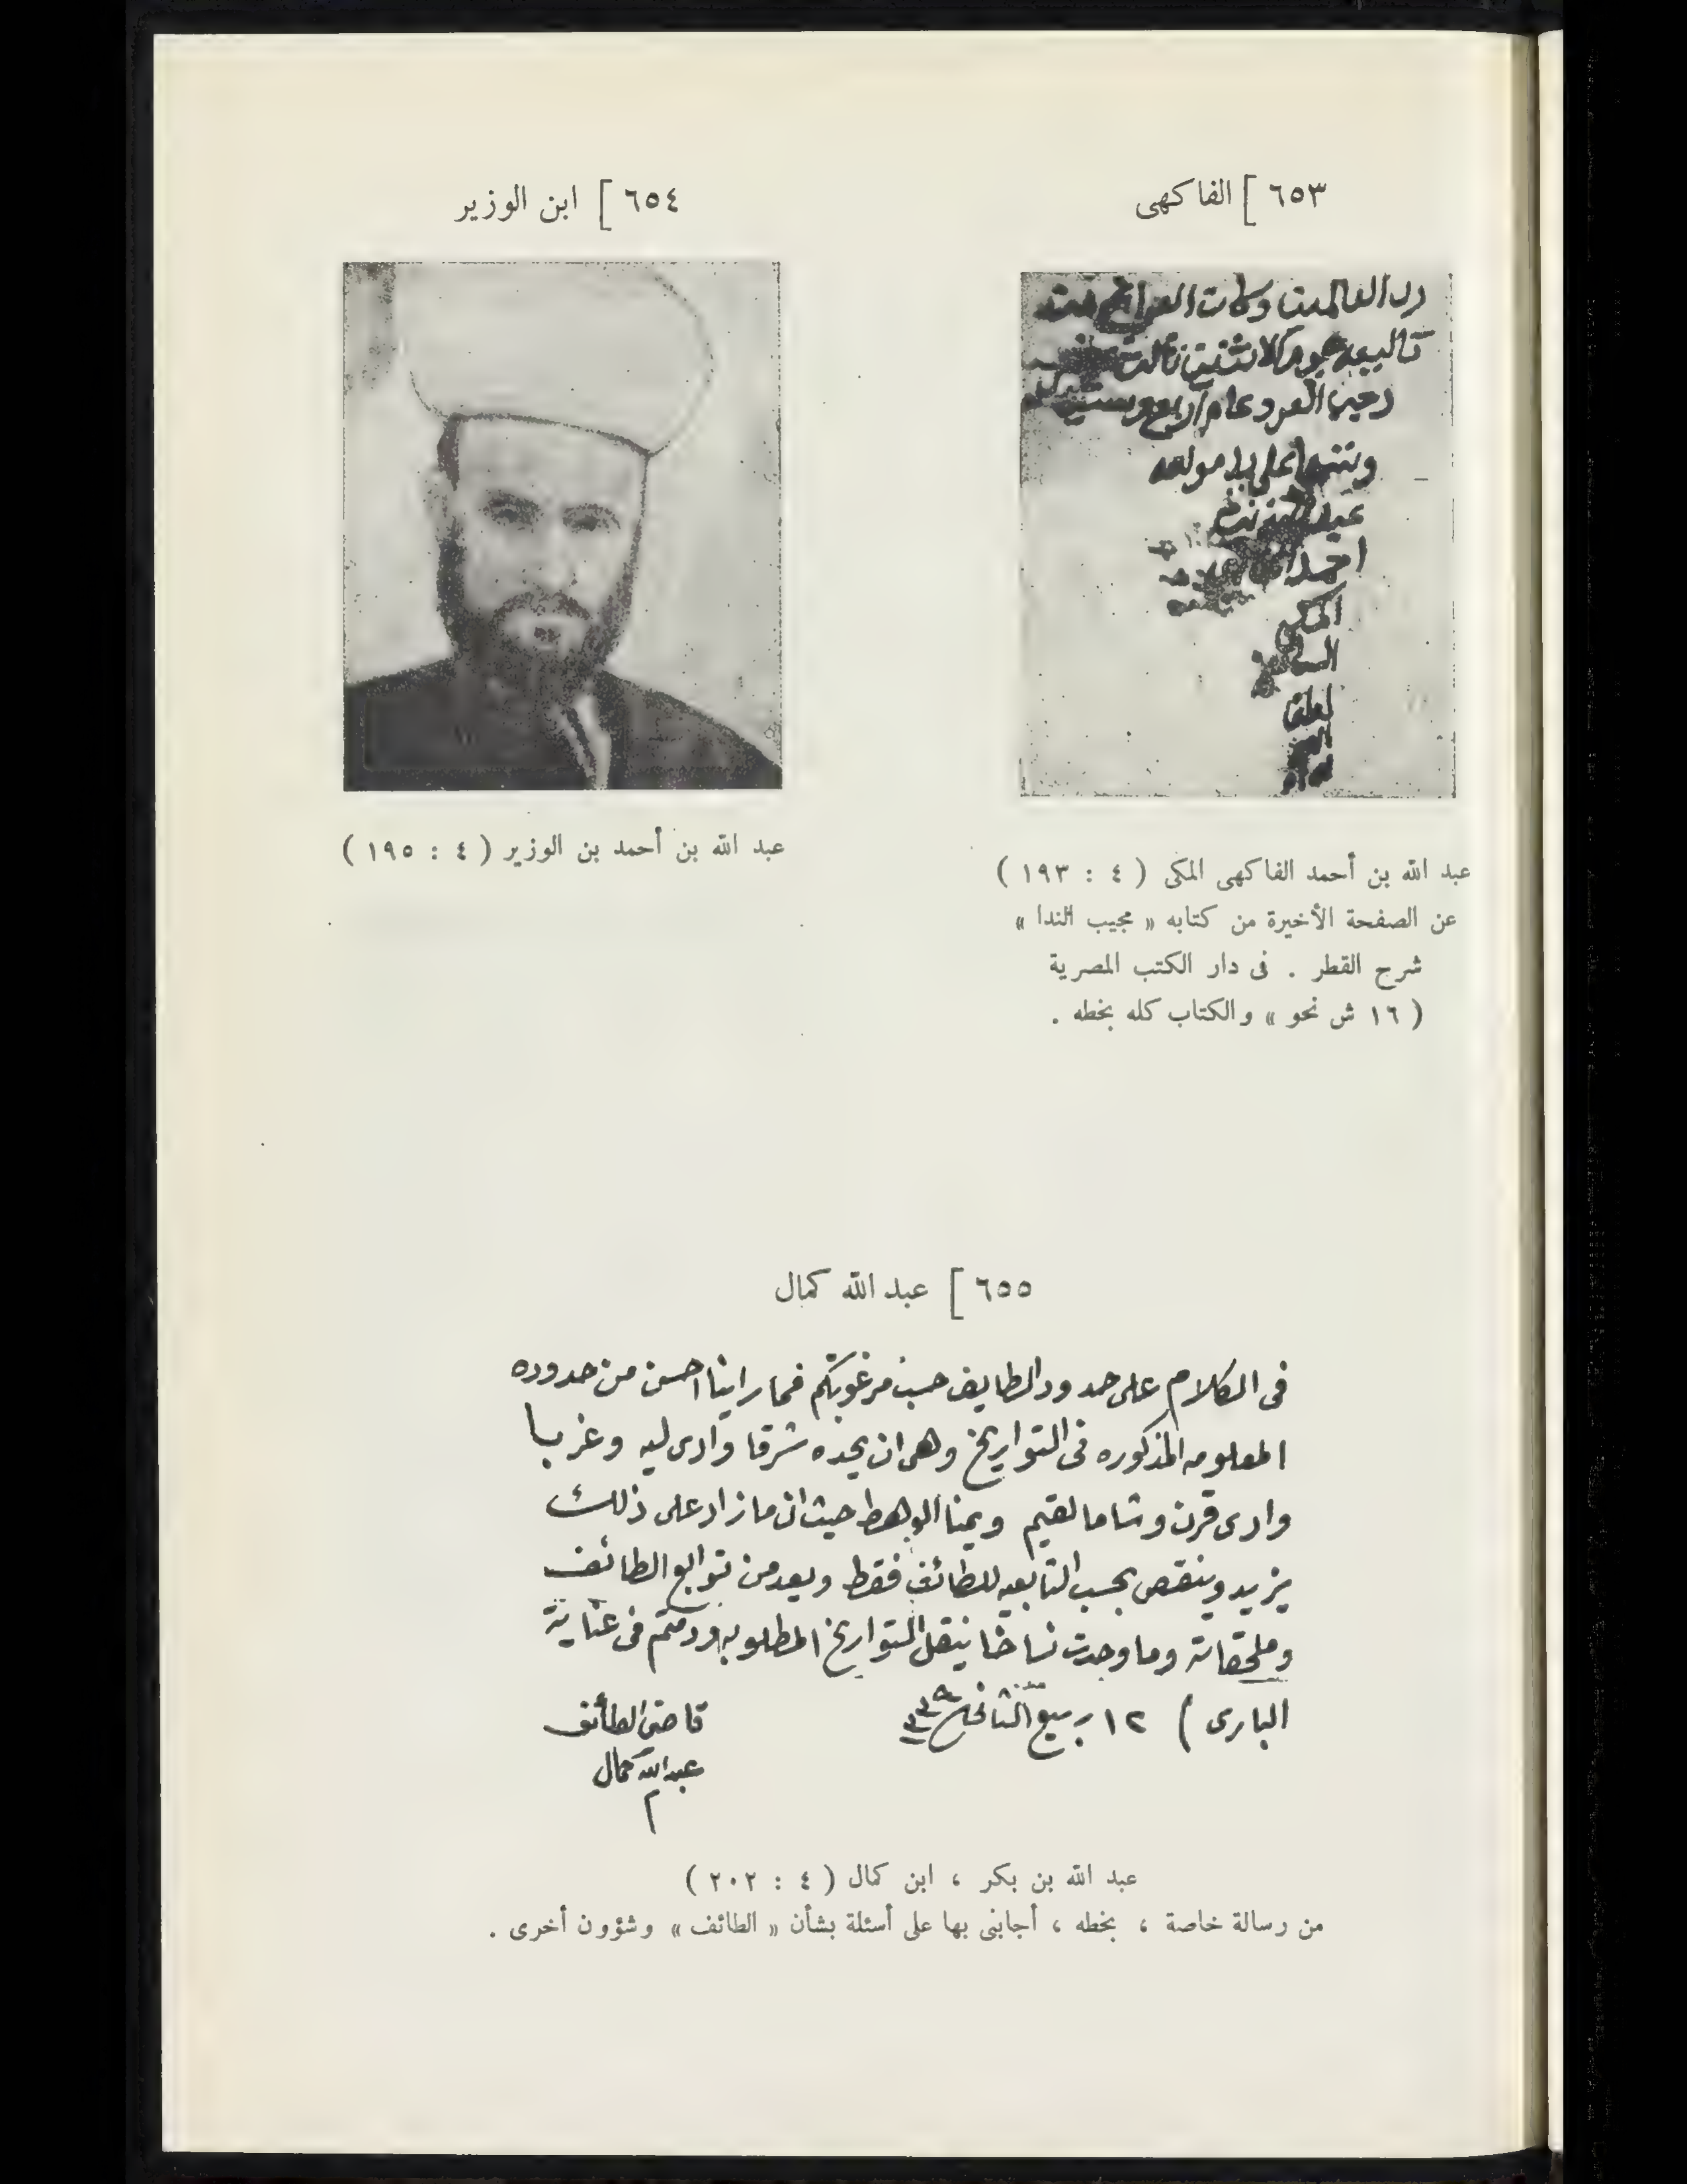 ٦٥٣ ] الفاكهى
رب العالمين وكان الفراغ من
تاليفه يوم الاثنين ثالث
رجب الفرد عام اربع وستين
على يد مولفه
عبد الله بن
احمد
المكى
٦٥٤ ] ابن الوزير
عبد الله بن أحمد الفاكهى المكى ( ٤ : ١٩٣ )
عن الصفحة الأخيرة من كتابه « مجيب الندا »
شرح القطر . فى دار الكتب المصرية
( ١٦ ش نحو » والكتاب كله بخطه .
عبد الله بن أحمد بن الوزير ( ٤ : ١٩٥ )
٦٥٥ ] عبد الله كمال
فى الكلام على حدود الطايف حسب مرغوبكم فما راينا احسن من حدوده
المعلومه المذكوره فى التواريخ وهى ان يحده شرقا وادى ليه وغربا
وادى قرن وشاما لقيم ويمنا الوهط حيث ان ما زاد على ذلك
يزيد وينقص بحسب التابعيه للطائف فقط ويعد من توابع الطائف
وملحقاته وما وجدت نساخا ينقل التواريخ المطلوبه ودمتم فى عناية
البارى ) ١٢ ربيع الثانى
قاضى الطائف
عبد الله كمال
عبد الله بن بكر ، ابن كمال ( ٤ : ٢٠٢ )
من رسالة خاصة ، بخطه ، أجابنى بها على أسئلة بشأن « الطائف » وشؤون أخرى .